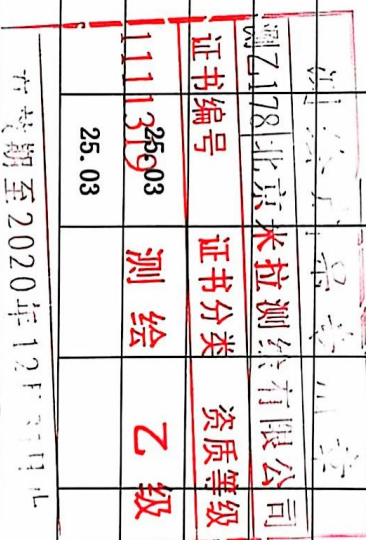 测绘成果专用章
测乙178 北京米拉测绘有限公司
证书编号 证书分类 资质等级
1111319 测绘 乙级
25.03
25.03
有效期至2020年12月31日止